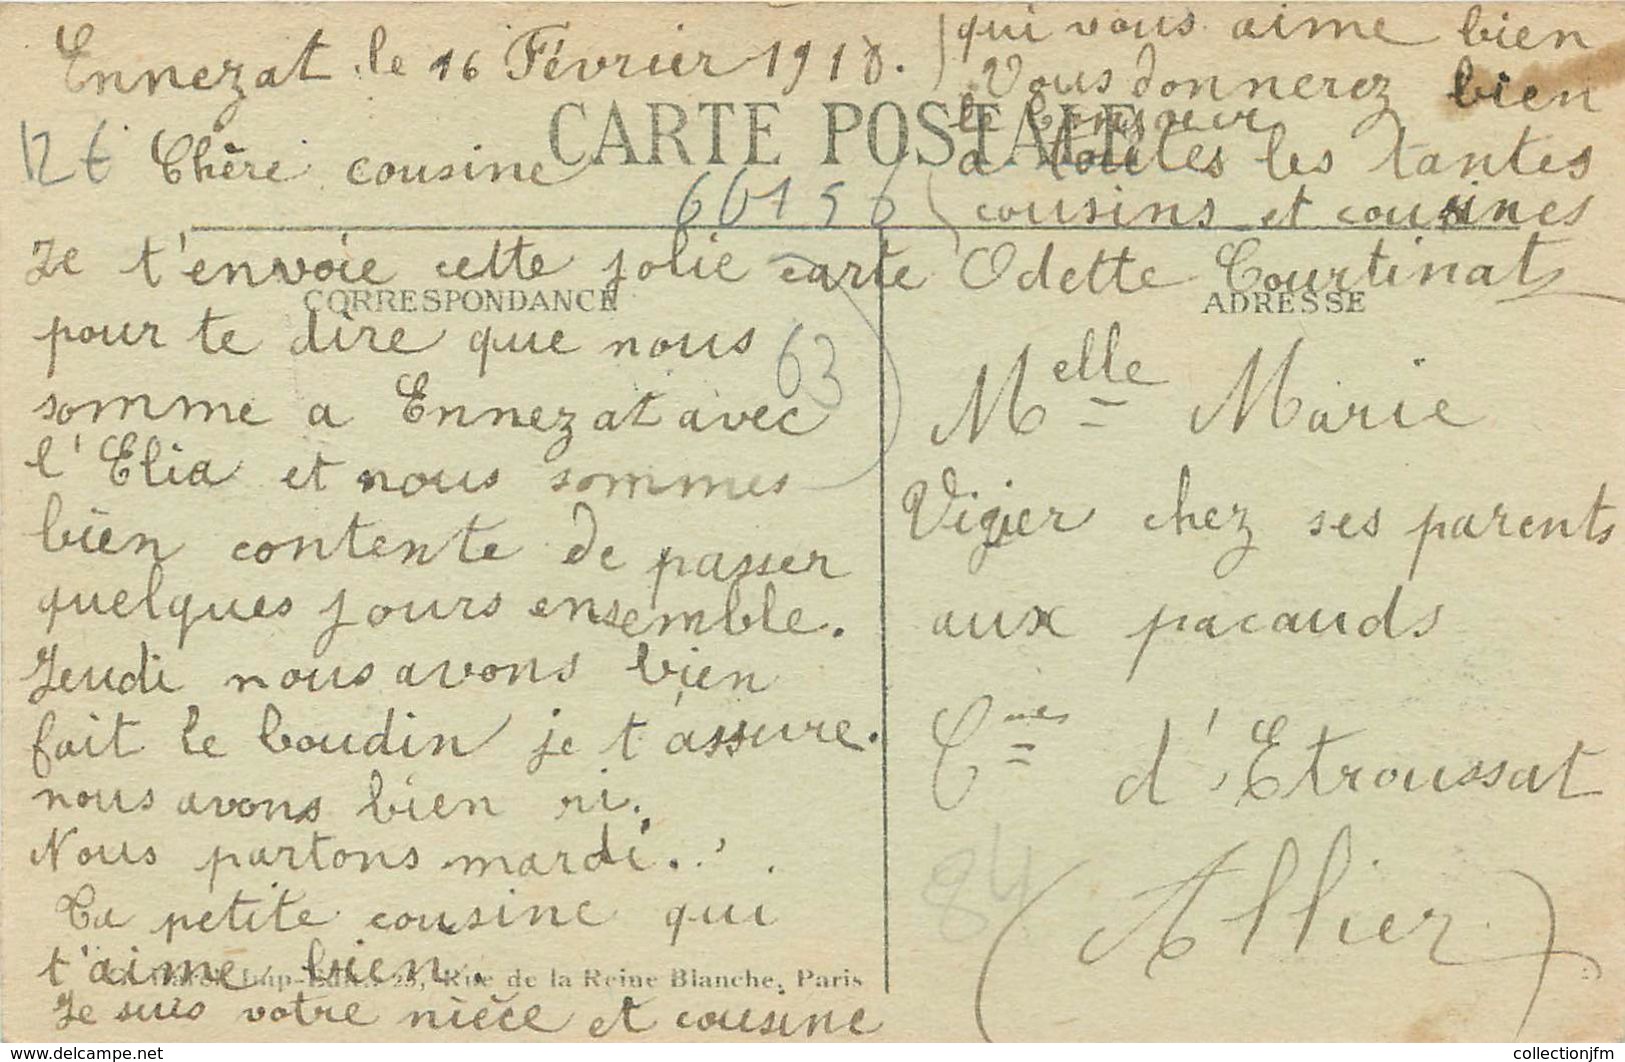 Ennezat le 16 Février 1918.
12 €
Chère cousine
CARTE POSTALE
66156
Je t'envoie cette jolie carte
CORRESPONDANCE
pour te dire que nous
63
somme a Ennezat avec
l'Elia et nous sommes
bien contente de passer
quelques jours ensemble.
Jeudi nous avons bien
fait le boudin je t'assure.
nous avons bien ri.
Nous partons mardi.
Ta petite cousine qui
t'aime bien.
Rue de la Reine Blanche, Paris
Je suis votre nièce et cousine
qui vous aime bien
Vous donnerez bien
le bonjour
a toutes les tantes
cousins et cousines
Odette Courtinat
ADRESSE
Melle Marie
Vigier chez ses parents
aux pacauds
Cnes d'Etroussat
84
(Allier)
www.delcampe.net
collectionjfm